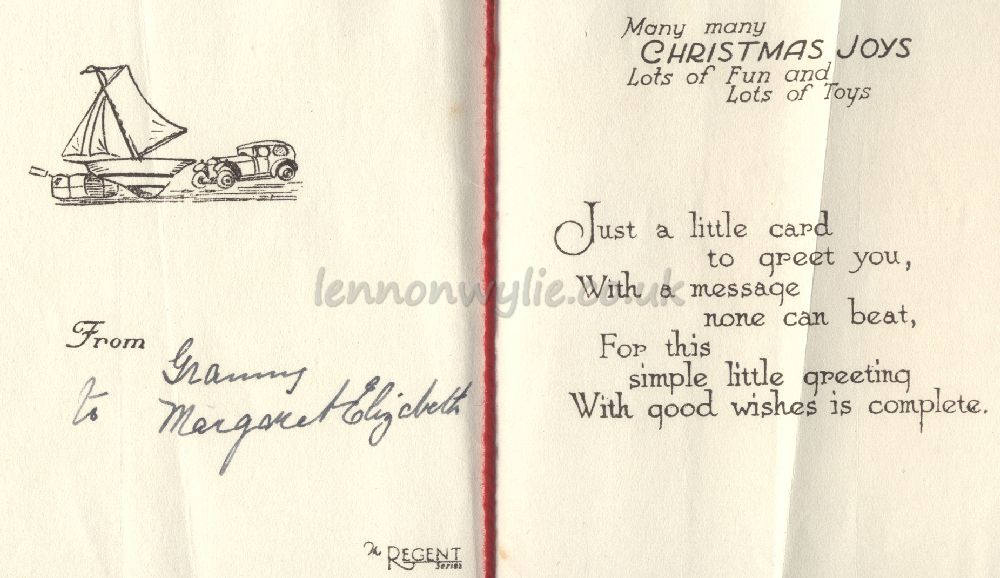 From
Granny
to Margaret Elizabeth
The REGENT
Series
Many many
CHRISTMAS JOYS
Lots of Fun and
Lots of Toys
Just a little card
to greet you,
With a message
none can beat,
For this
simple little greeting
With good wishes is complete.
lennonwylie.co.uk